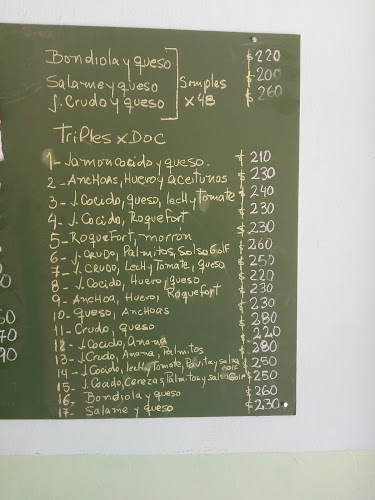 Bondiola y queso $ 220
Salame y queso Simples $ 200
J. Crudo y queso x 48 $ 260
Triples x Doc
1- Jamon cocido y queso. $ 210
2- Anchoas, Huevo y aceitunas $ 230
3- J. Cocido, queso, lech y Tomate $ 240
4- J. Cocido, Roquefort $ 230
5- Roquefort, morrón $ 230
6- J. Crudo, Palmitos, Salsa Golf $ 260
7- J. Crudo, Lech y Tomate, queso $ 250
8- J. Cocido, Huevo, queso $ 220
9- Anchoa, Huevo, Roquefort $ 230
10- Queso, Anchoas $ 230
11- Crudo, queso $ 280
12- J. Cocido, Anana $ 220
13- J. Crudo, Anana, Palmitos $ 280
14- J. Cocido, lech y Tomate, Pavita y salsa Golf $ 250
15- J. Cocido, Cerezas, Palmitos y salsa Golf $ 250
16- Bondiola y queso $ 260
17- Salame y queso $ 230
70
90